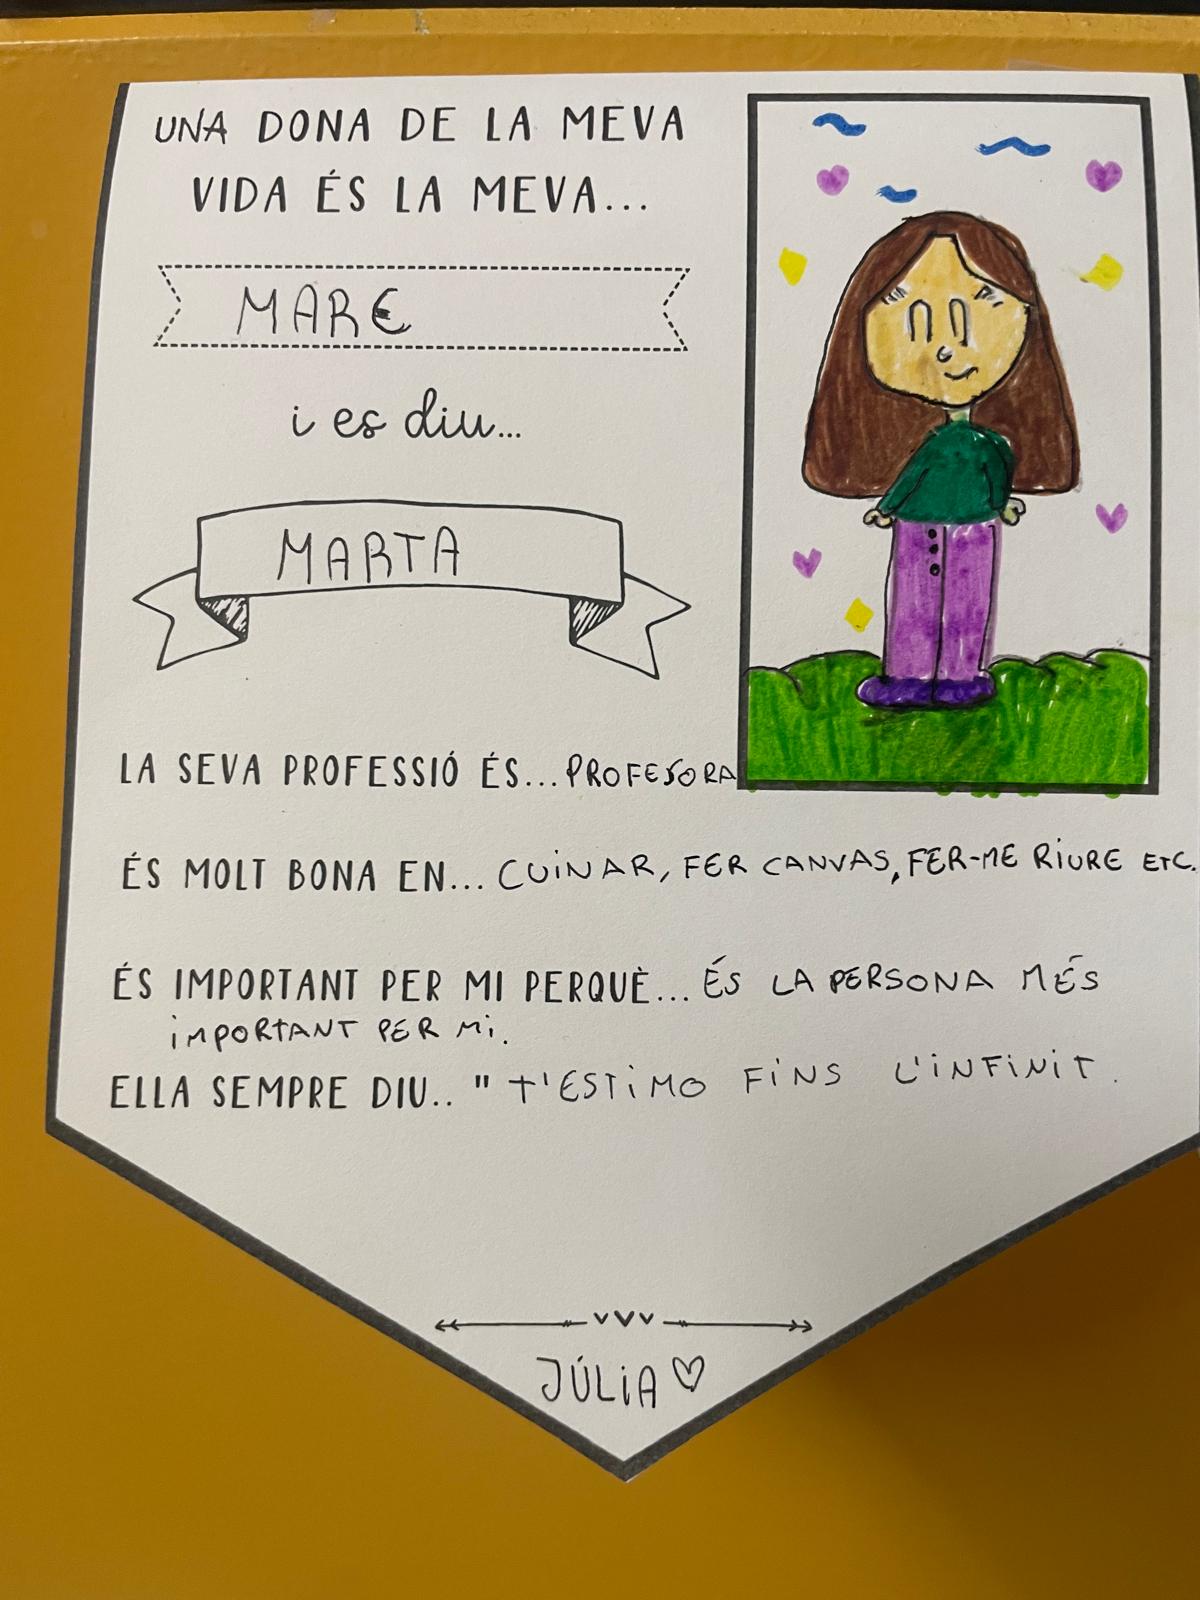 UNA DONA DE LA MEVA
VIDA ÉS LA MEVA...
MARE
i es diu...
MARTA
LA SEVA PROFESSIÓ ÉS... PROFESORA
ÉS MOLT BONA EN... CUINAR, FER CANVAS, FER-ME RIURE ETC.
ÉS IMPORTANT PER MI PERQUÈ... ÉS LA PERSONA MÉS
IMPORTANT PER MI.
ELLA SEMPRE DIU.. " T'ESTIMO FINS L'INFINIT.
JÚLIA ♡